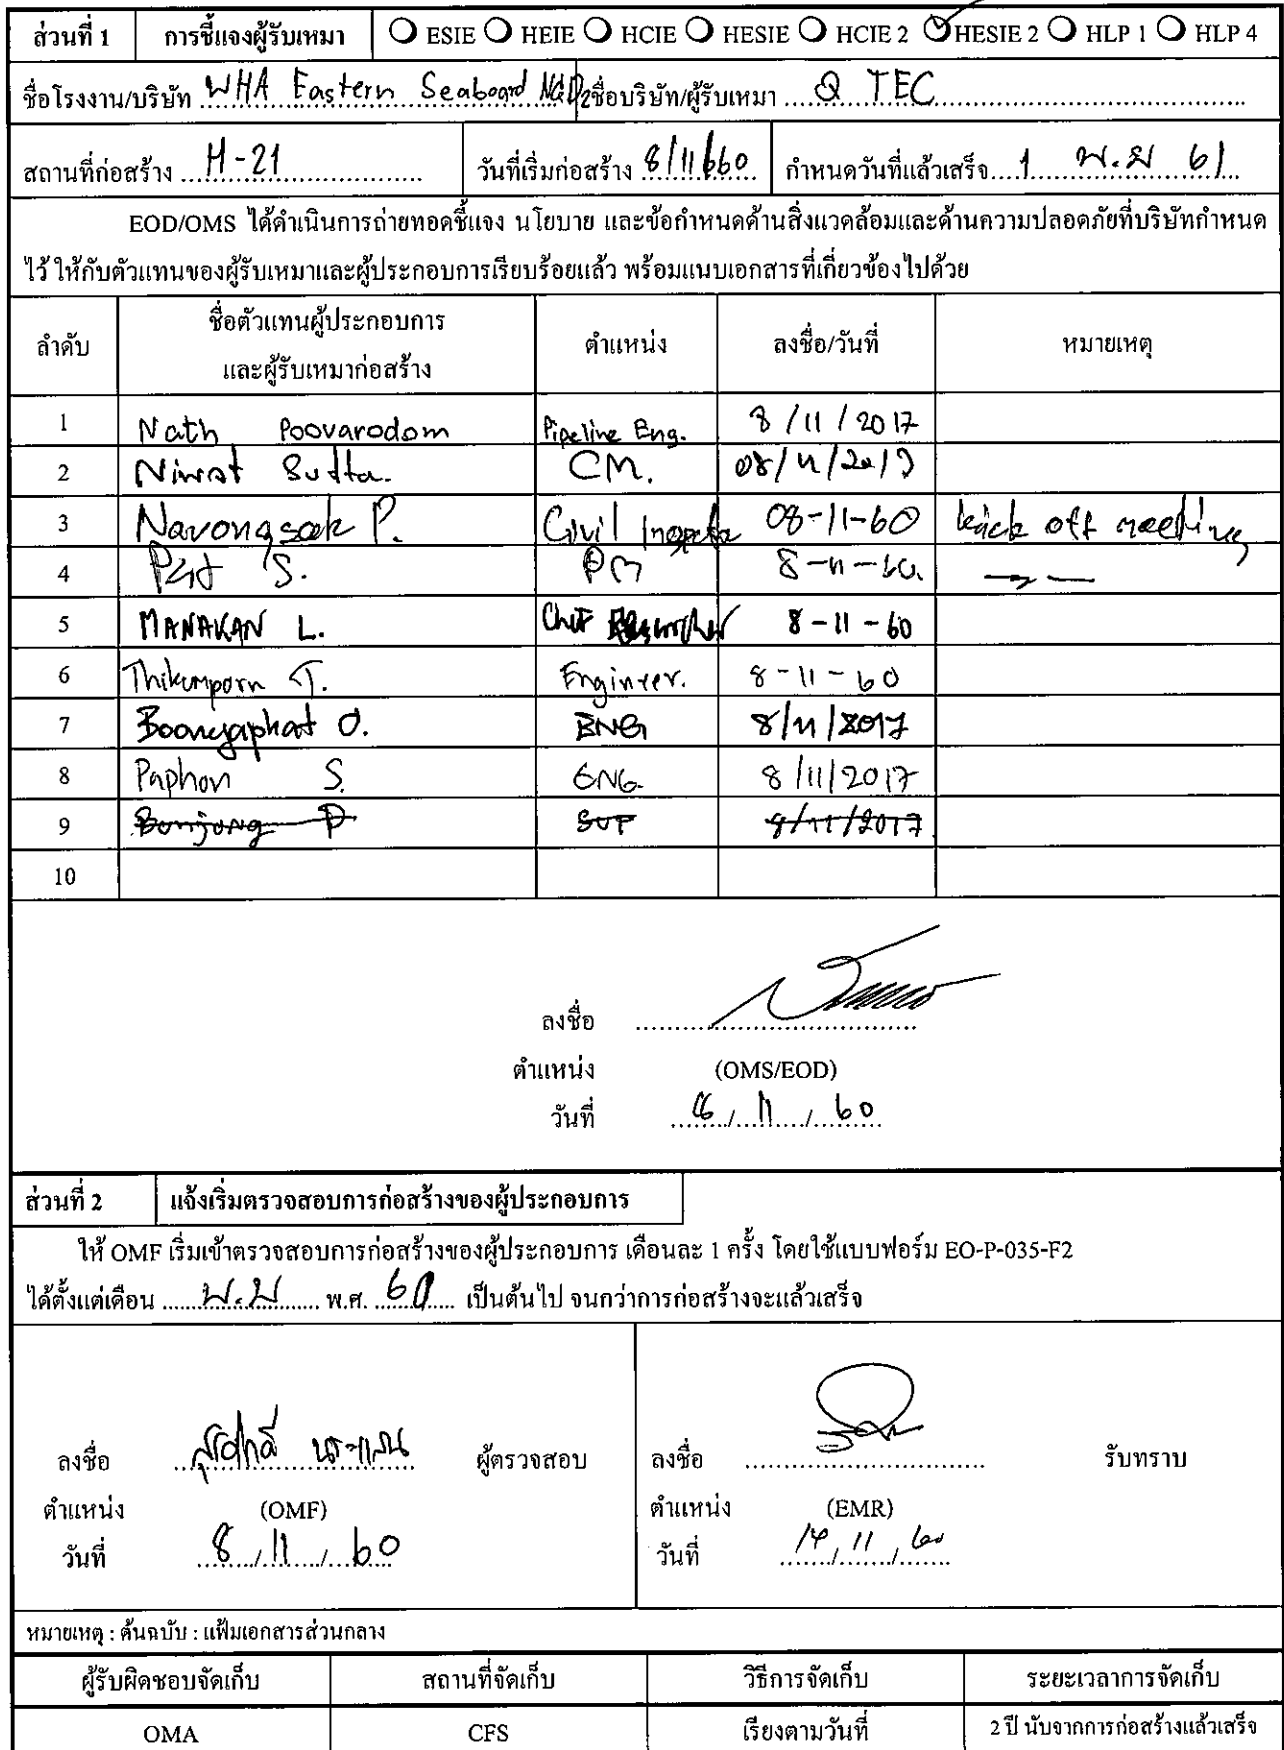 ส่วนที่ 1 การชี้แจงผู้รับเหมา ESIE HEIE HCIE HESIE HCIE 2 HESIE 2 HLP 1 HLP 4
ชื่อโรงงาน/บริษัท WHA Eastern Seaboard NGD2 ชื่อบริษัท/ผู้รับเหมา Q TEC
สถานที่ก่อสร้าง H-21 วันที่เริ่มก่อสร้าง 8/11/60 กำหนดวันที่แล้วเสร็จ 1 พ.ย 61
EOD/OMS ได้ดำเนินการถ่ายทอดชี้แจง นโยบาย และข้อกำหนดด้านสิ่งแวดล้อมและด้านความปลอดภัยที่บริษัทกำหนด
ไว้ ให้กับตัวแทนของผู้รับเหมาและผู้ประกอบการเรียบร้อยแล้ว พร้อมแนบเอกสารที่เกี่ยวข้องไปด้วย
ลำดับ ชื่อตัวแทนผู้ประกอบการ ตำแหน่ง ลงชื่อ/วันที่ หมายเหตุ
และผู้รับเหมาก่อสร้าง
1 Nath Poovarodom Pipeline Eng. 8/11/2017
2 Niwat Sutta. CM. 08/11/2017
3 Narongsak P. Civil 08-11-60 kick off meeting
4 S. PM 8-11-60.
5 MANAKAN L. 8-11-60
6 Thikumporn T. Engineer. 8-11-60
7 Boonyaphat O. ENG 8/11/2017
8 Paphon S. ENG. 8/11/2017
9 Bunjong P SUP 8/11/2017
10
ลงชื่อ
ตำแหน่ง (OMS/EOD)
วันที่ /11/60
ส่วนที่ 2 แจ้งเริ่มตรวจสอบการก่อสร้างของผู้ประกอบการ
ให้ OMF เริ่มเข้าตรวจสอบการก่อสร้างของผู้ประกอบการ เดือนละ 1 ครั้ง โดยใช้แบบฟอร์ม EO-P-035-F2
ได้ตั้งแต่เดือน พ.ย พ.ศ. 60 เป็นต้นไป จนกว่าการก่อสร้างจะแล้วเสร็จ
ลงชื่อ ผู้ตรวจสอบ ลงชื่อ รับทราบ
ตำแหน่ง (OMF) ตำแหน่ง (EMR)
วันที่ 8/11/60 วันที่ 14/11/60
หมายเหตุ : ต้นฉบับ : แฟ้มเอกสารส่วนกลาง
ผู้รับผิดชอบจัดเก็บ สถานที่จัดเก็บ วิธีการจัดเก็บ ระยะเวลาการจัดเก็บ
OMA CFS เรียงตามวันที่ 2 ปี นับจากการก่อสร้างแล้วเสร็จ